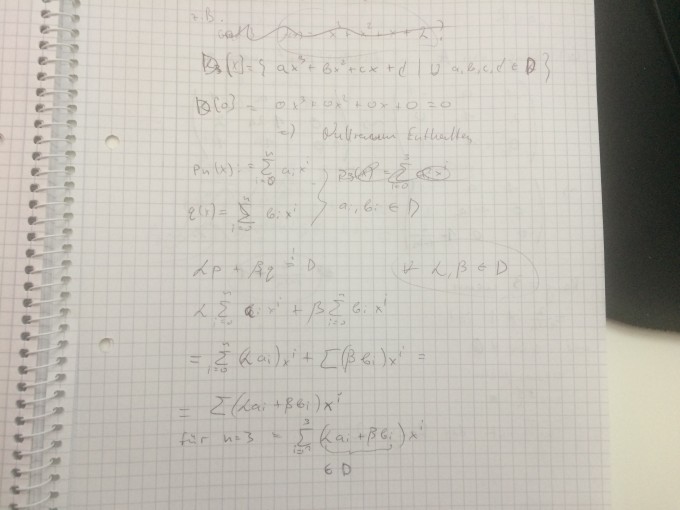 z.B.
D₃[x] = { ax³ + bx² + cx + d | ∪ a,b,c,d ∈ D }
D[0] = 0x³ + 0x² + 0x + 0 = 0
=> Nullraum Enthalten
pₙ(x) = ∑ᵢ₌₀ⁿ aᵢxⁱ
q(x) = ∑ᵢ₌₀ⁿ bᵢxⁱ } aᵢ, bᵢ ∈ D
αp + βq =! D ∀ α, β ∈ D
α ∑ᵢ₌₀ⁿ aᵢxⁱ + β ∑ᵢ₌₀ⁿ bᵢxⁱ
= ∑ᵢ₌₀ⁿ (αaᵢ)xⁱ + ∑(βbᵢ)xⁱ =
= ∑(αaᵢ + βbᵢ)xⁱ
für n=3 = ∑³ (αaᵢ + βbᵢ)xⁱ
∈ D